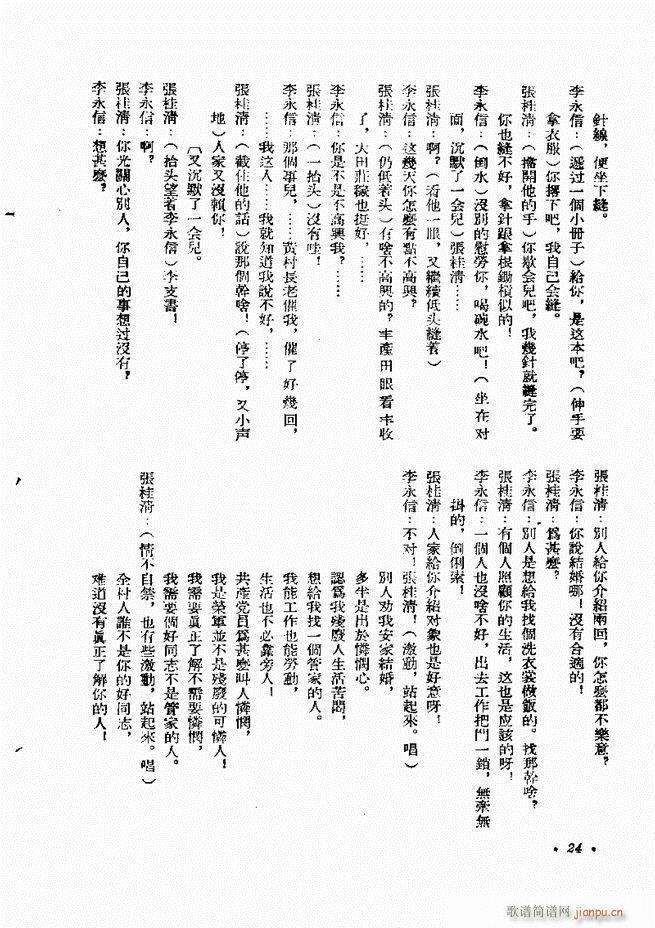 針線，便坐下縫。
李永信：（遞过一個小冊子）給你，是这本吧？（伸手要
拿衣服）你撂下吧，我自己会縫。
張桂清：（擋開他的手）你歇会兒吧，我幾針就縫完了。
你也縫不好，拿針跟拿根鋤槓似的！
李永信：（倒水）沒別的慰勞你，喝碗水吧！（坐在对
面，沉默了一会兒）張桂清……
張桂清：啊？（看他一眼，又繼續低头縫着）
李永信：这幾天你怎麼有點不高興？
張桂清：（仍低着头）有啥不高興的？丰產田眼看丰收
了，大田莊稼也挺好，……
李永信：你是不是不高興我？……
張桂清：（一抬头）沒有哇！
李永信：那個事兒，……黃村長老催我，催了好幾回，
……我这人……我就知道我說不好，……
張桂清：（截住他的話）說那個幹啥！（停了停，又小声
地）人家又沒賴你！
〔又沉默了一会兒。
張桂清：（抬头望着李永信）李支書！
李永信：啊？
張桂清：你光關心別人，你自己的事想过沒有？
李永信：想甚麼？
張桂清：別人給你介紹兩回，你怎麼都不樂意？
李永信：你說結婚哪！沒有合適的！
張桂清：爲甚麼？
李永信：別人是想給我找個洗衣裳做飯的。找那幹啥？
張桂清：有個人照顧你的生活，这也是应該的呀！
李永信：一個人也沒啥不好，出去工作把門一鎖，無牽無
掛的，倒俐索！
張桂清：人家給你介紹对象也是好意呀！
李永信：不对！張桂清！（激動，站起來。唱）
別人劝我安家結婚，
多半是出於憐憫心。
認爲我殘廢人生活苦悶，
想給我找一個管家的人。
我能工作也能勞動，
生活也不必靠旁人！
共產党員爲甚麼叫人憐憫，
我是榮軍並不是殘廢的可憐人！
我需要真正了解不需要憐憫，
我需要個好同志不是管家的人。
張桂清：（情不自禁，也有些激動，站起來。唱）
全村人誰不是你的好同志，
难道沒有真正了解你的人！
• 24 •
歌谱简谱网
jianpu.cn